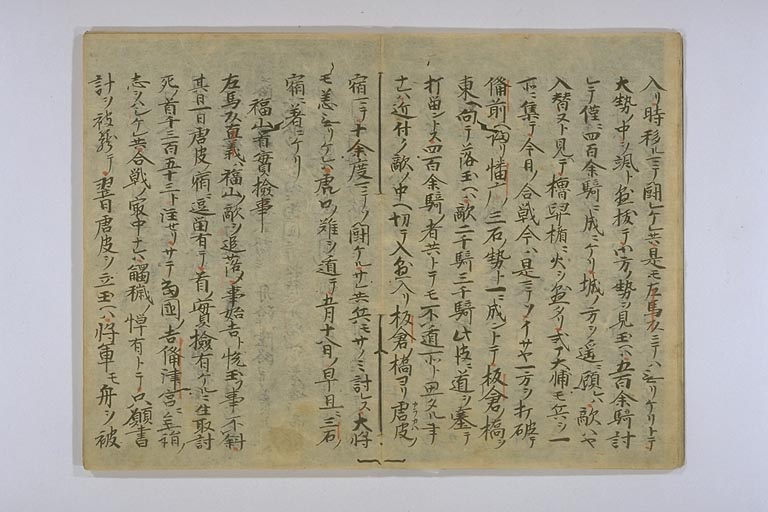 入リ時移ルマテ闘ヒケレ共是モ左馬頭ニテハ無リケリトテ
大勢ノ中ヲ颯ト蒐抜テ小方ノ勢ヲ見玉ヘハ五百余騎討
レテ僅ニ四百余騎ニ成ニケリ城ノ方ヲ遥ニ顧レハ敵ハヤ
入替ヌト見テ櫓掻楯ニ火ヲ蒐タリ式部大輔モ兵ヲ一
所ニ集テ今日ノ合戦今ハ是マテソイサヤ一方ヲ打破テ
備前ヘ帰リ幡广三石ノ勢ト一ニ成ントテ板倉ノ橋ヲ
東ヘ向テ落玉ヘハ敵二千騎三千騎此彼ニ道ヲ塞テ
打留ントス四百余騎ノ者共トテモ不遁所ト思タル事
ナレハ近付ノ敵ノ中ヘ切テ入蒐入リ板倉ノ橋ヨリ唐皮
宿マテ十余度マテソ闘ケルサレ共兵モサノミ討レス大将
モ恙ナカリケレハ虎口ノ難ヲ遁テ五月十八日ノ早旦ニ三石ノ
宿ニ著ニケリ
福山首實檢事
左馬頭直義福山ノ敵ヲ追落シ事始吉ト悦玉フ事不斜
其日一日唐皮ノ宿ニ逗留有テ首ノ實檢有ケルニ生取討
死ノ首千三百五十三ト注セリサテ當國ノ吉備津宮ニ参詣ノ
志ヲハシケレ共合戦ノ最中ナレハ觸穢ノ憚有トテ只願書
計ヲ被籠テ翌日唐皮ヲ立玉ヘハ将軍モ舟ヲ被